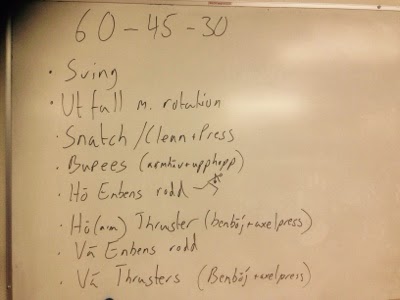 60-45-30
• Sving
• Utfall m. rotation
• Snatch/Clean+Press
• Bupees (armhäv+upphopp)
• Hö Enbens rodd
• Hö(arm) Thruster (benböj+axelpress)
• Vä Enbens rodd
• Vä Thrusters (Benböj+axelpress)